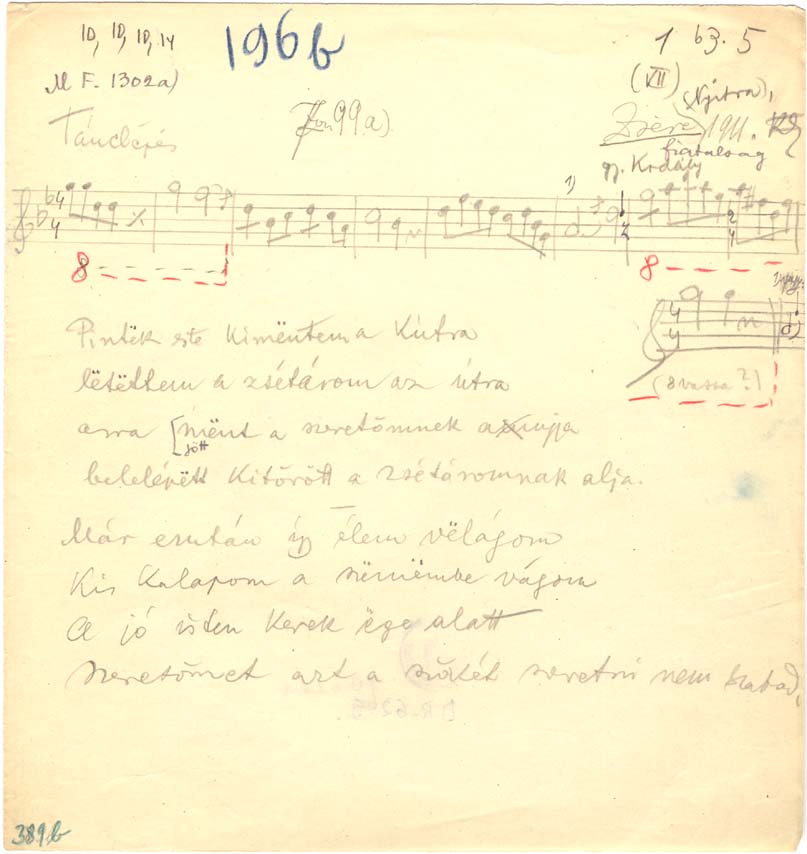 10, 10, 10, 14
196 b
1 b3. 5
M F. 1302a)
(VII)
(Nyitra),
Tánclépés
99a)
Zsére 1911.
fiatalság
gy. Kodály
1)
4
4
2
4
8
8
4
4
(8vassa?)
Pintëk este kimëntem a kútra
lëtëttem a zsétárom az útra
arra [mënt a szeretőmnek annyja
jött
belelépëtt kitörött a zsétáromnak alja.
Már ezután így élem vëlágom
Kis kalapom a szëmëmbe vágom
A jó isten kerek ége alatt
Szeretőmet azt a szőkét szeretni nem szabad,
389b